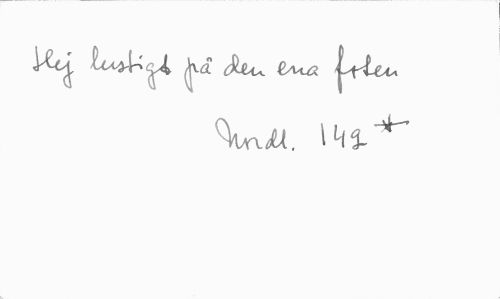 Hej lustigt på den ena foten
Nordl. 149 *